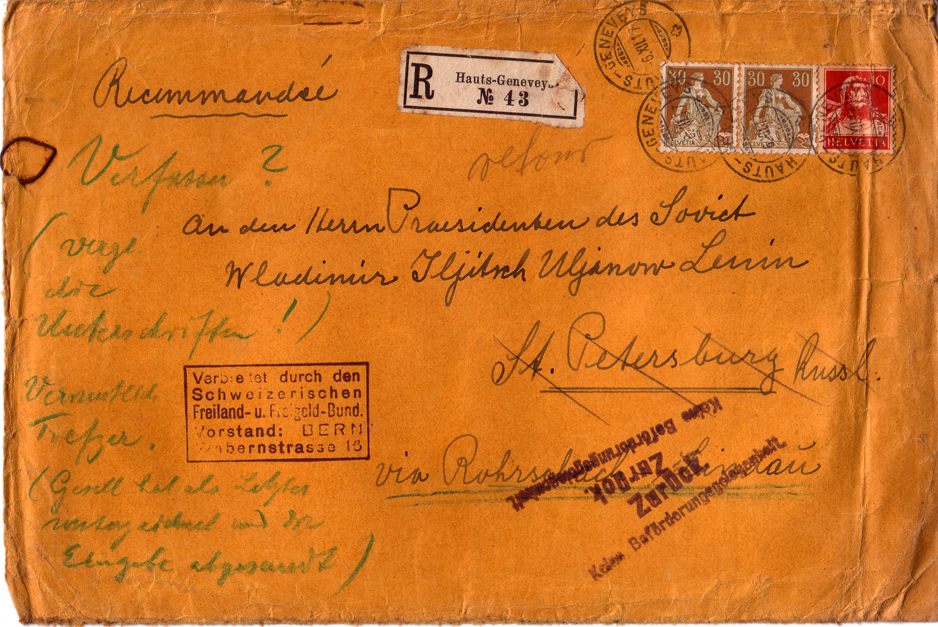 Recommandé
R
Hauts-Geneveys.
№ 43
HAUTS-GENEVEYS
6.XII.17
30 30
30 30
10
HELVETIA
HELVETIA
HELVETIA
retour
Verfasser ?
An den Herrn Praesidenten des Soviet
Wladimir Iljitsch Uljanow Lenin
St. Petersburg Russl.
via Rohrschach-Lindau
(vergl
die
Unterschriften!)
Vermutlich
Trefzer.
(Gesell hat als Letzter
unterzeichnet und die
Eingabe abgesandt)
Verbreitet durch den
Schweizerischen
Freiland- u. Freigeld-Bund.
Vorstand: BERN
Keine Beförderungsgelegenheit
Zurück.
Zurück
Keine Beförderungsgelegenheit